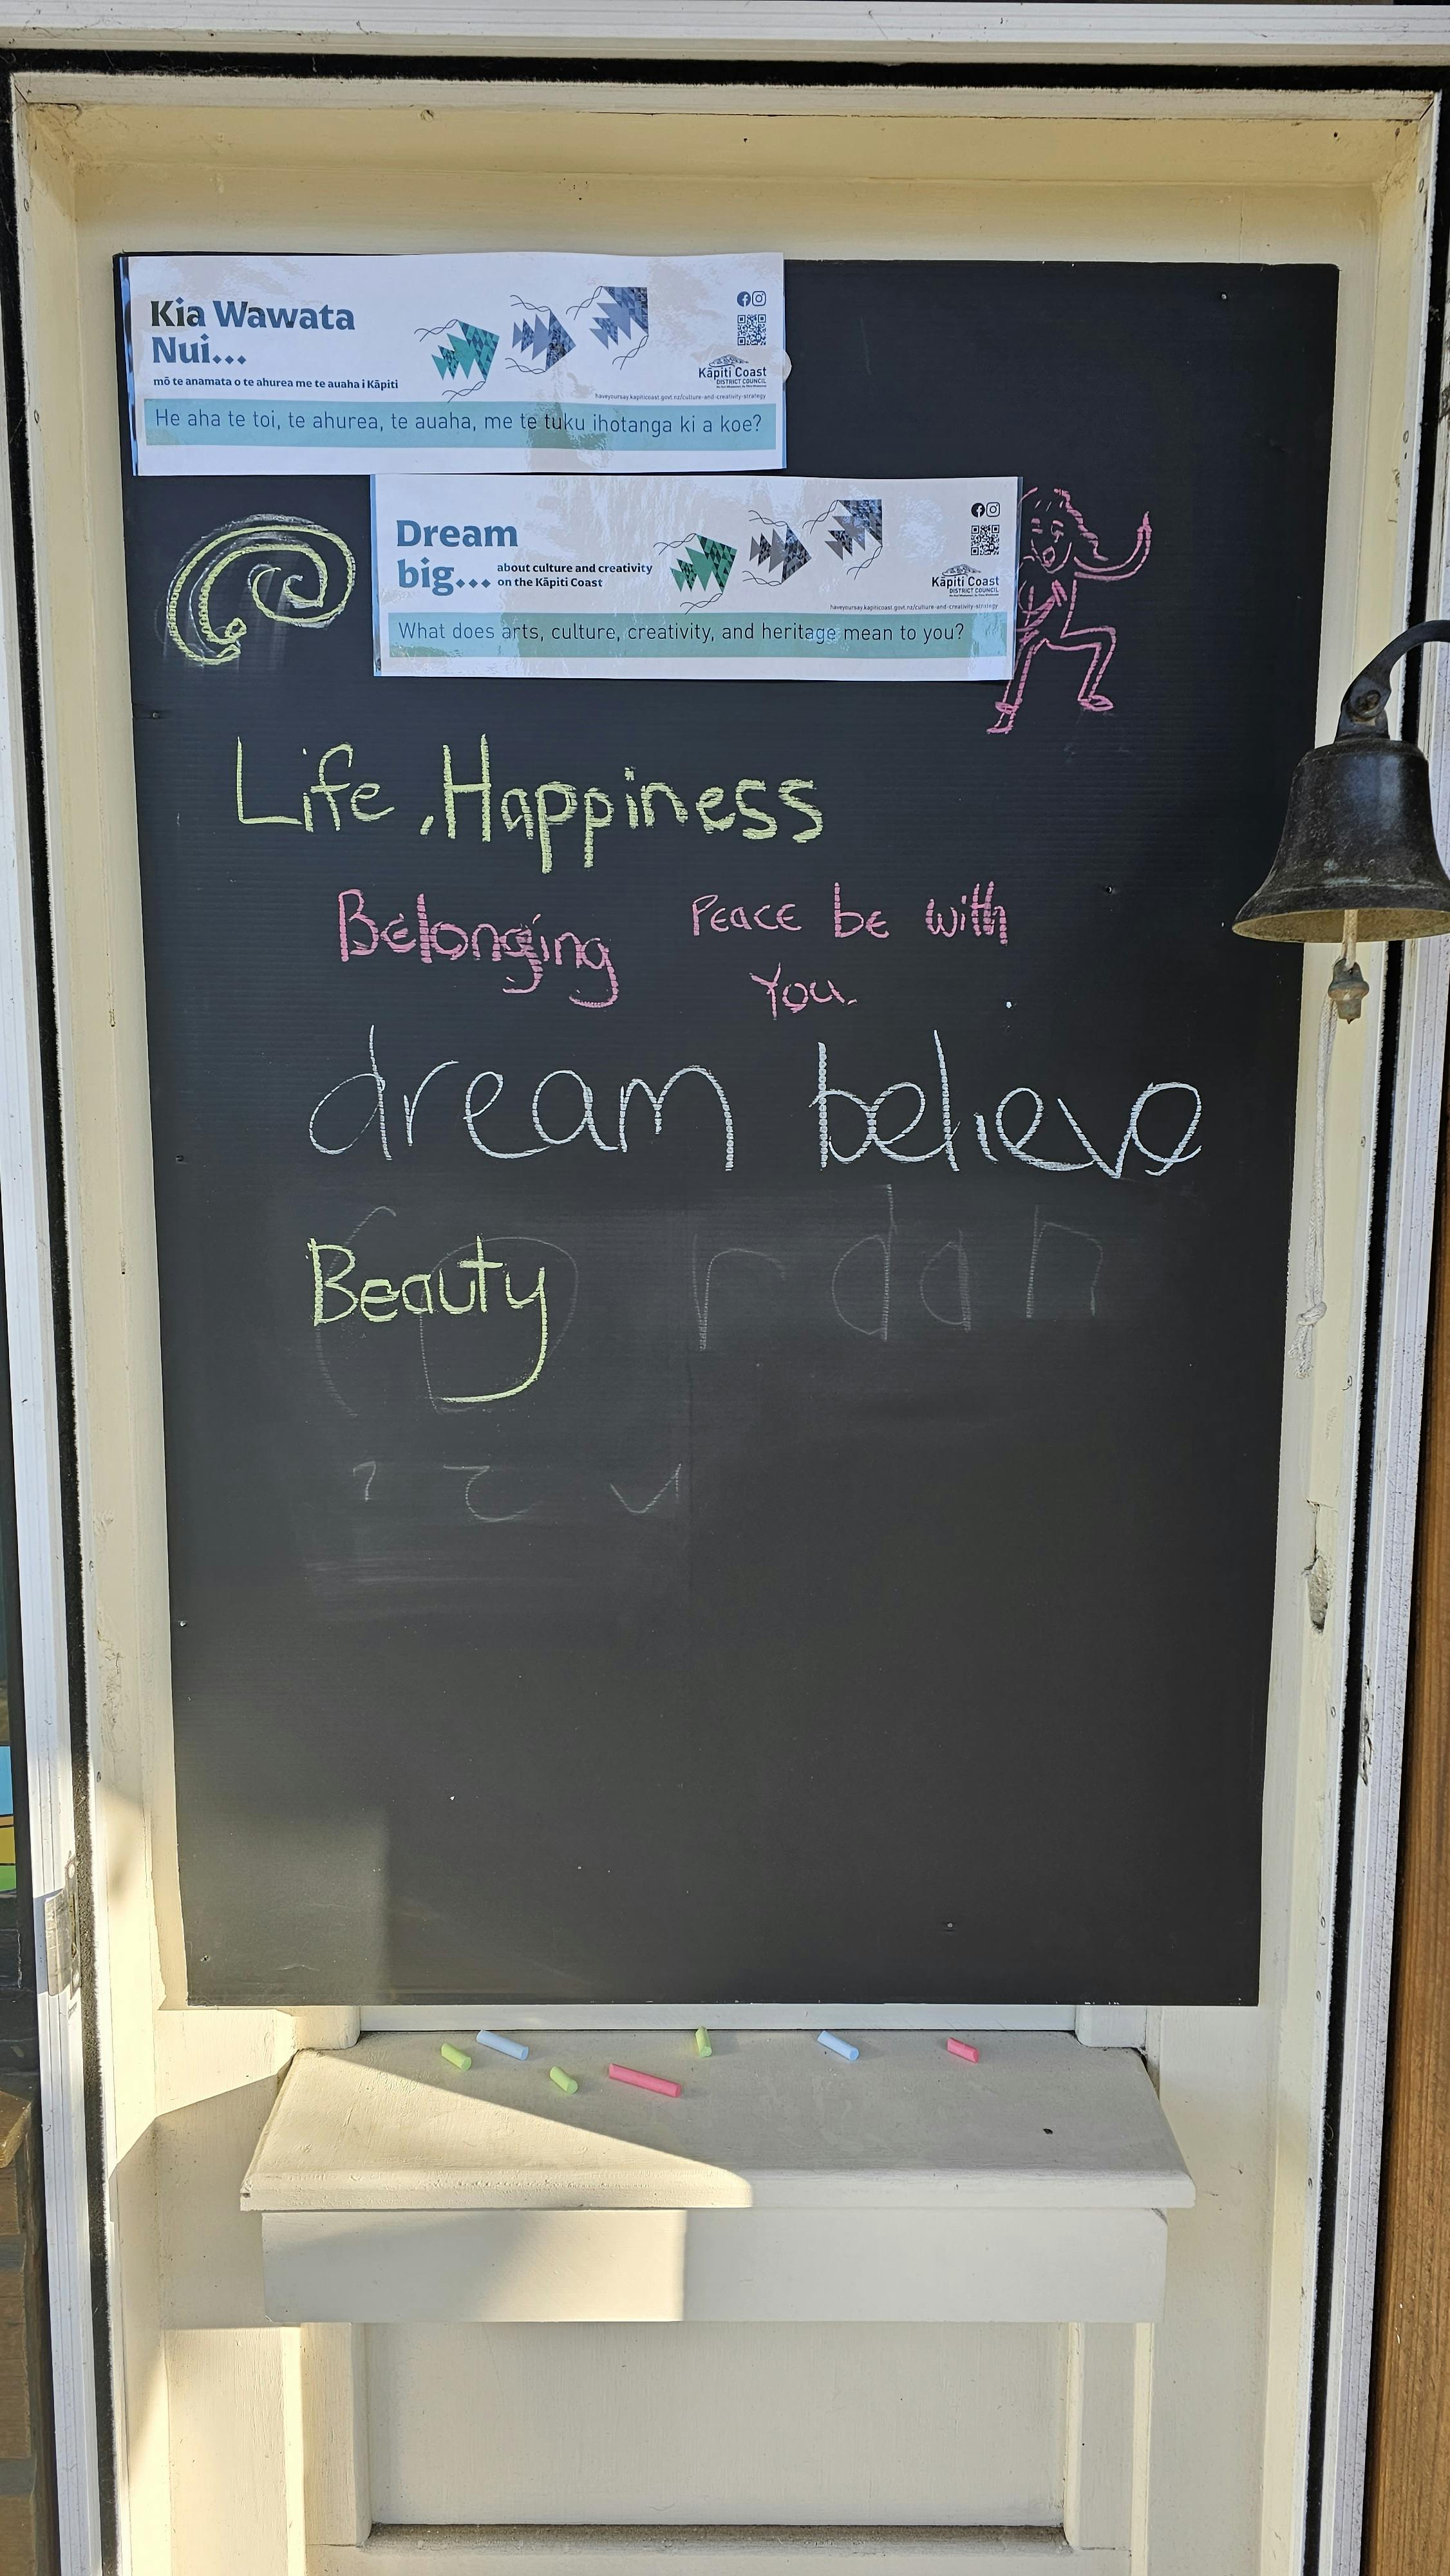 Kia Wawata
Nui...
mō te anamata o te ahurea me te auaha i Kāpiti
Kāpiti Coast
DISTRICT COUNCIL
haveyoursay.kapiticoast.govt.nz/culture-and-creativity-strategy
He aha te toi, te ahurea, te auaha, me te tuku ihotanga ki a koe?
Dream
big... about culture and creativity
on the Kāpiti Coast
Kāpiti Coast
DISTRICT COUNCIL
haveyoursay.kapiticoast.govt.nz/culture-and-creativity-strategy
What does arts, culture, creativity, and heritage mean to you?
Life, Happiness
Belonging
Peace be with
You.
dream believe
Beauty